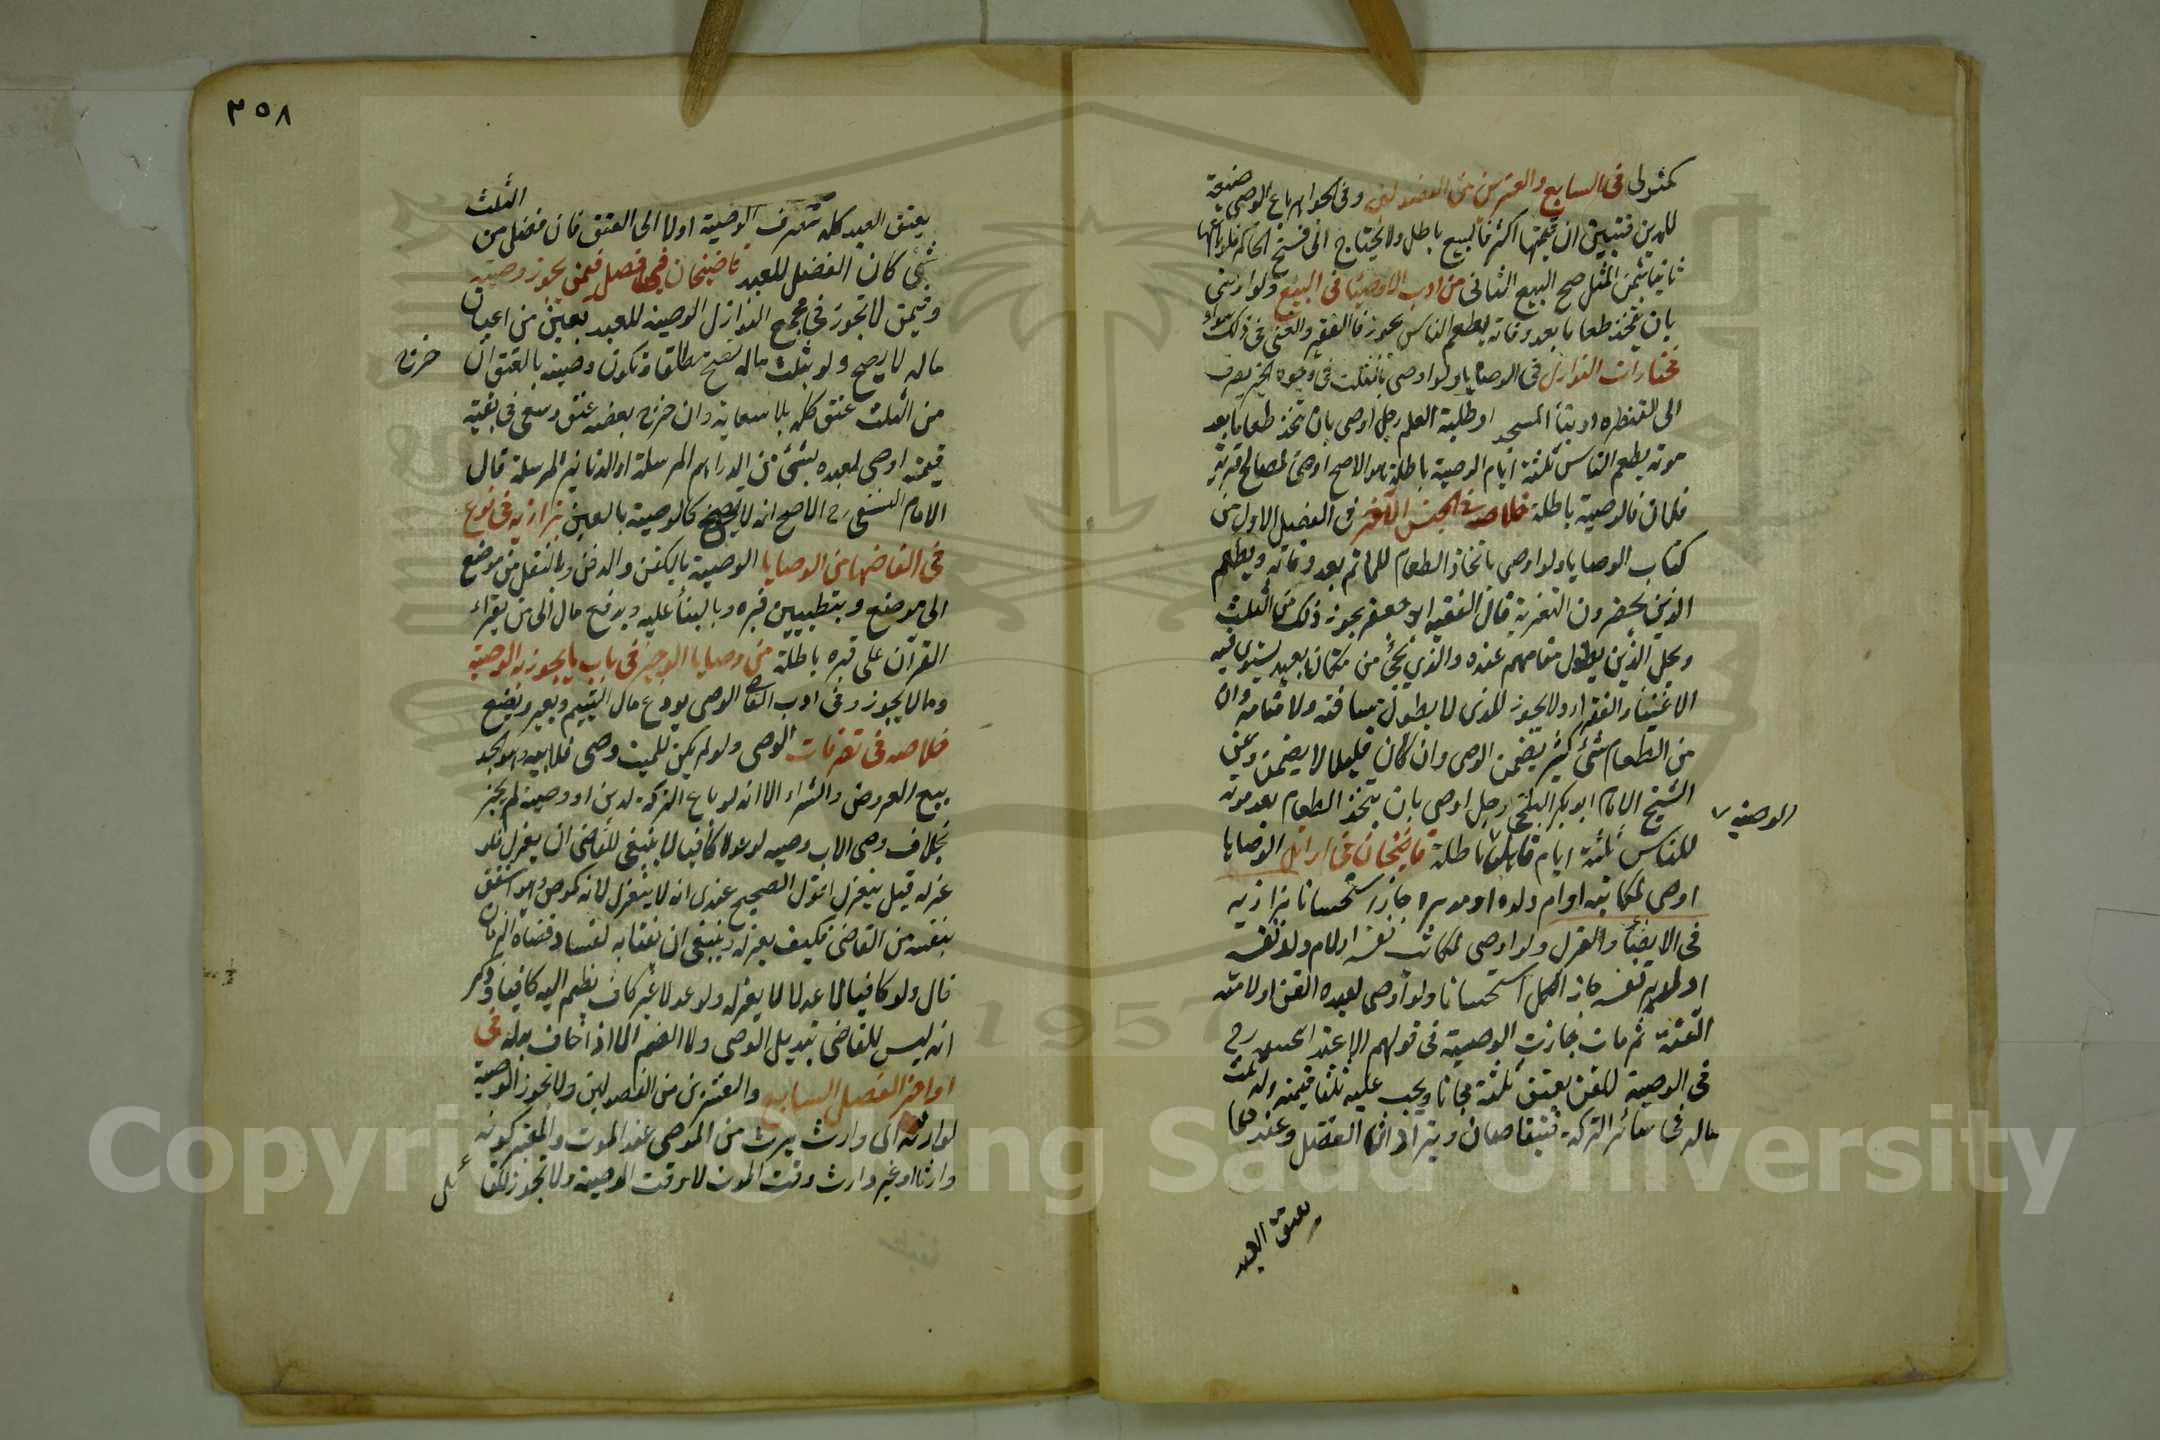 كمتولى في السابع والعشرين من الفصولين وفي الجواهر باع الوصي ضيعة
للدين فتبين ان قيمتها اكثر فالبيع باطل ولا يحتاج الى فسخ الحاكم فلو باعها
ثانيا بثمن المثل صح البيع الثاني من ادب الاوصياء في البيع ولو اوصى
بان يتخذ طعاما بعد وفاته ليطعم الناس يجوز فالفقير والغني في ذلك سواء
مختارات النوازل في الوصايا ولو اوصى بالثلث في وجوه الخير يصرف
الى القنطرة او بناء المسجد او طلبة العلم رجل اوصى بان يتخذ طعاما بعد
موته يطعم الناس ثلثة ايام الوصية باطلة هو الاصح اوصى لمصالح قرية
فلان فالوصية باطلة خلاصه في الجنس الآخر في الفصل الاول من
كتاب الوصايا ولو اوصى باتخاذ الطعام للماتم بعد وفاته ويطعم
الذين يحضرون التعزية قال الفقيه ابو جعفر يجوز ذلك من الثلث
ويحل للذين يطول مقامهم عنده والذي يجئ من مكان بعيد يستوي فيه
الاغنياء والفقراء ولا يجوز للذي لا يطول مسافته ولا مقامه وان
من الطعام شئ كثير يضمن الوصي وان كان قليلا لا يضمن وعن
الشيخ الامام ابو بكر البلخي رجل اوصى بان يتخذ الطعام بعد موته
الوصية
للناس ثلثة ايام قال باطلة قاضيخان في اوائل الوصايا
اوصى لمكاتبه او ام ولده او مدبره جاز استحسانا بزازيه
في الايصاء والعزل ولو اوصى لمكاتب نفسه او لام ولد نفسه
او لمدبر نفسه جاز الكل استحسانا ولو اوصى لعبده القن او لامته
القنة ثم مات جازت الوصية في قولهم الا عند
في الوصية للقن يعتق ثلثه مجانا ويجب عليه ثلثا قيمته وله ثلث
ماله في سائر التركة فيتقاصان ويترادان الفضل وعندهما
يعتق العبد
٣٥٨
يعتق العبد كله تصرف الوصية اولا الى العتق فان فضل من الثلث
شئ كان الفضل للعبد قاضيخان في فصل فيمن يجوز وصيته
وفيمن لا تجوز في مجمع النوازل الوصية للعبد بعين من اعيان
ماله لا يصح ولو بثلث ماله تصح مطلقا وتكون وصية بالعتق ان خرج
من الثلث عتق كله بلا سعاية وان خرج بعضه عتق وسعى في بقية
قيمته اوصى لعبده بشئ من الدراهم المرسلة او الدنانير المرسلة قال
الامام النسفي رح الاصح انه لا يصح كالوصية بالعين بزازيه في نوع
في الفاضها من الوصايا الوصية بالكفن والدفن وبالنقل من موضع
الى موضع وبتطيين قبره وبالبناء عليه وبدفع مال الى من يقراء
القرآن على قبره باطلة من وصايا الوجيز في باب ما يجوز به الوصية
وما لا يجوز وفي ادب القاضي الوصي يودع مال اليتيم ويعير ويبضع
خلاصه في تصرفات الوصي ولو لم يكن للميت وصي فلابيه وهو الجد
بيع العروض والشراء الا انه لو باع التركة لدين او وصية لم يجز
بخلاف وصي الاب وصيه لو عدلا كافيا لا ينبغي للقاضي ان يعزل فلو
عزله قيل ينعزل اقول الصحيح عندي انه لا ينعزل لانه كموص وهو اشفق
بنفسه من القاضي فكيف يعزله وينبغي ان يفتى به لفساد قضاة الزمان
قال ولو كافيا لا عدلا لا يعزله ولو عدلا غير كاف يضم اليه كافيا وذكر
انه ليس للقاضي تبديل الوصي ولا الضم الا اذا خاف في
اواخر الفصل السابع والعشرين من الفصولين ولا تجوز الوصية
لوارثه اى وارث يرث من الموصي عند الموت والمعتبر كونه
وارثا او غير وارث وقت الموت لا وقت الوصية ولا تجوز لقاتل
Copyright © King Saud University
1957